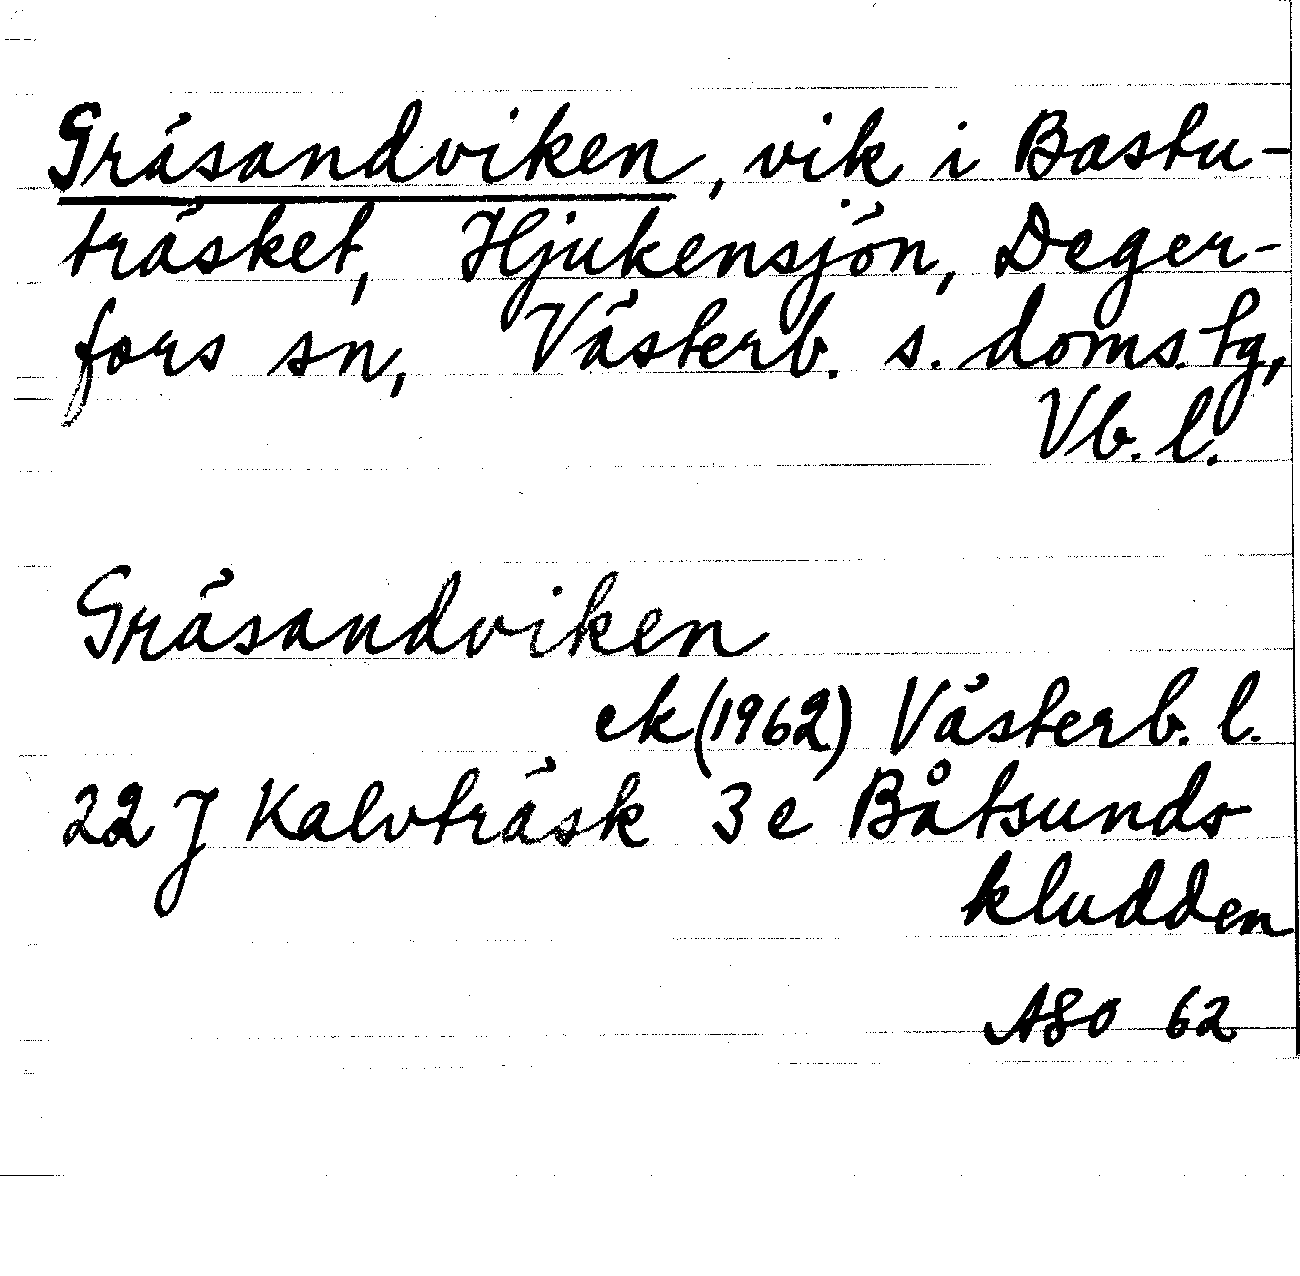 Gräsandviken, vik i Bastu-
träsket, Hjukensjön, Deger-
fors sn, Västerb. s. doms. tg,
Vb. l.
Gräsandviken
ek (1962) Västerb. l.
22 J Kalvträsk 3 e Båtsunds
kludden
ASO 62